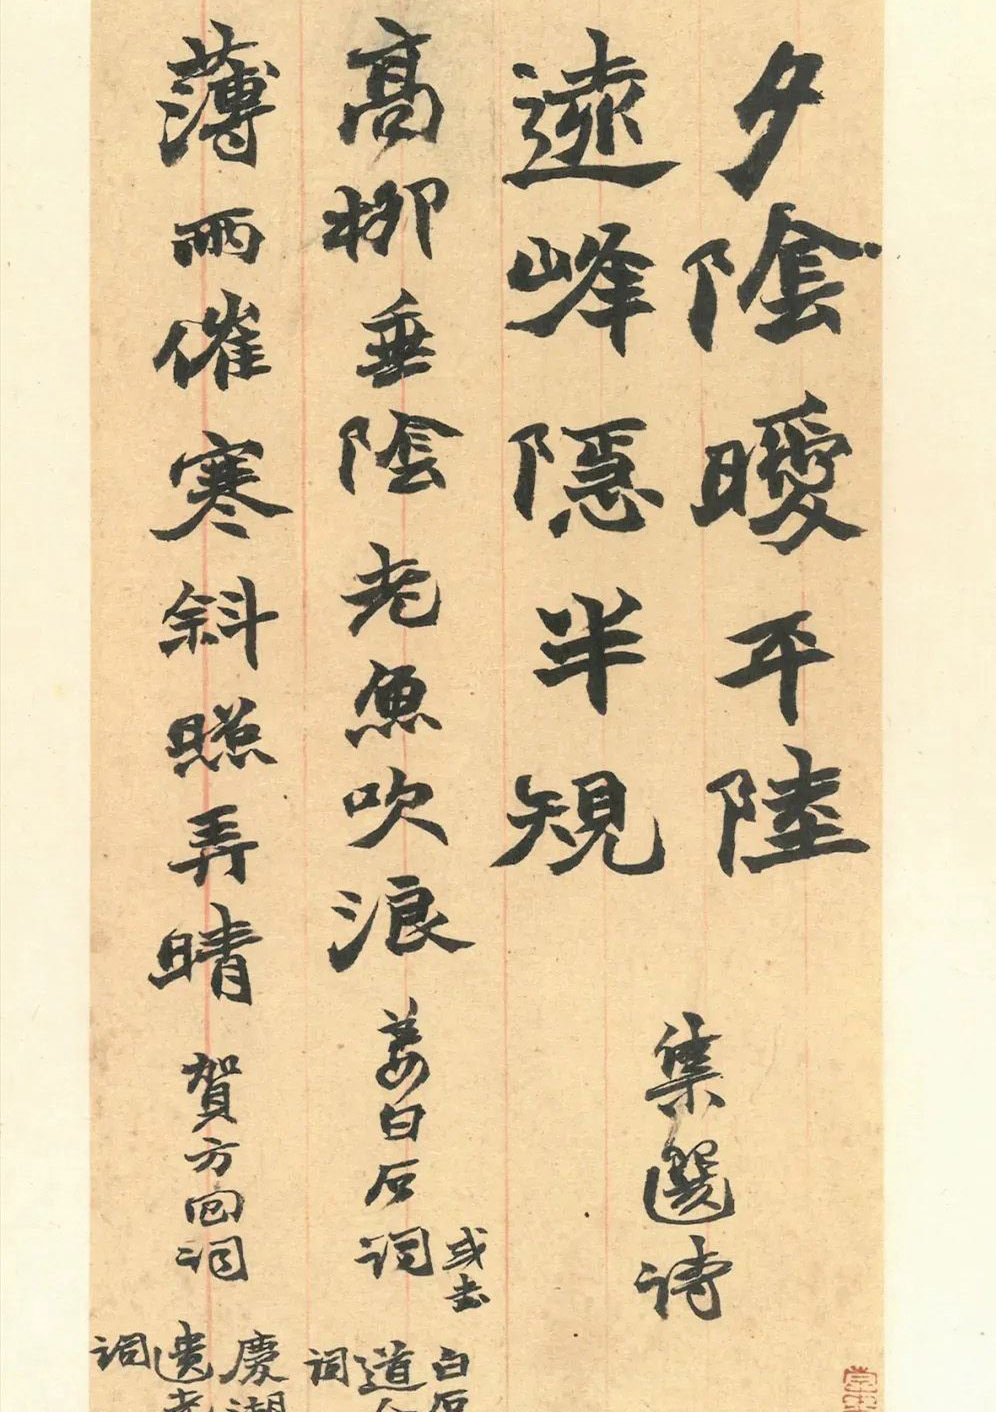 夕陰曖平陸
遠峰隱半規
集選詩
高柳垂陰老魚吹浪
姜白石詞
或書
白石
道人
詞
薄雨催寒斜照弄晴
賀方回詞
慶湖
遺老
詞